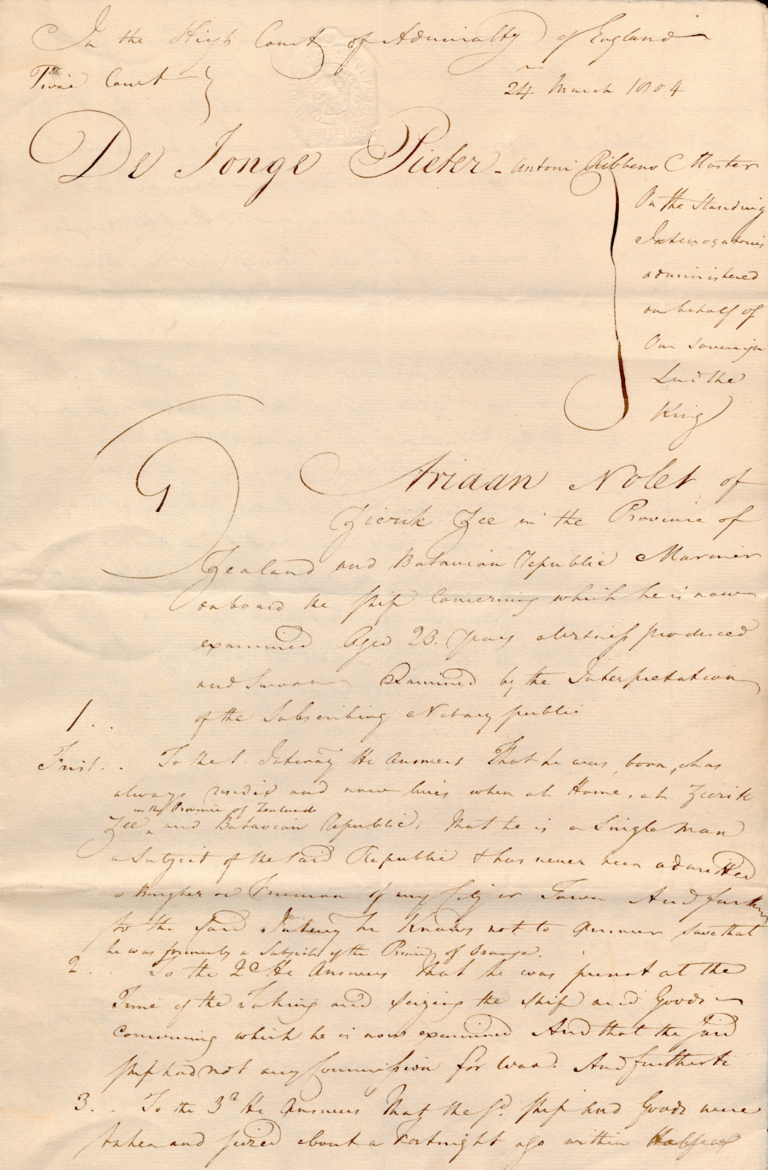 In the High Court of Admiralty of England
Prize Court
24 March 1804
De Jonge Pieter - Antoni Gibbens Master
On the Standing
Interrogatories
administered
on behalf of
Our Sovereign
Lord the
King
Ariaan Nolet of
Zierik Zee in the Province of
Zealand and Batavian Republic Mariner
onboard the ship Concerning which he is now
examined Aged 23. Years a Witness produced
and Sworn Examined by the Interpretation
1. of the Subscribing Notary public
First. To the 1. Interry He Answers That he was born, has
always resided and now lives when at Home, at Zierik
in the Province of Zealand
Zee and Batavian Republic; that he is a Single man
a Subject of the said Republic & has never been admitted
a Burgher or Freeman of any City or Town And further
to the said Interry he knows not to answer save that
he was formerly a Subject of the Prince of Orange.
2. To the 2d. He Answers that he was present at the
Time of the Taking and Seizing the Ship and Goods
concerning which he is now examined And that the said
ship had not any Commission for War. And further to
3. To the 3d He Answers That the sd. ship and Goods were
taken and seized about a Fortnight ago within